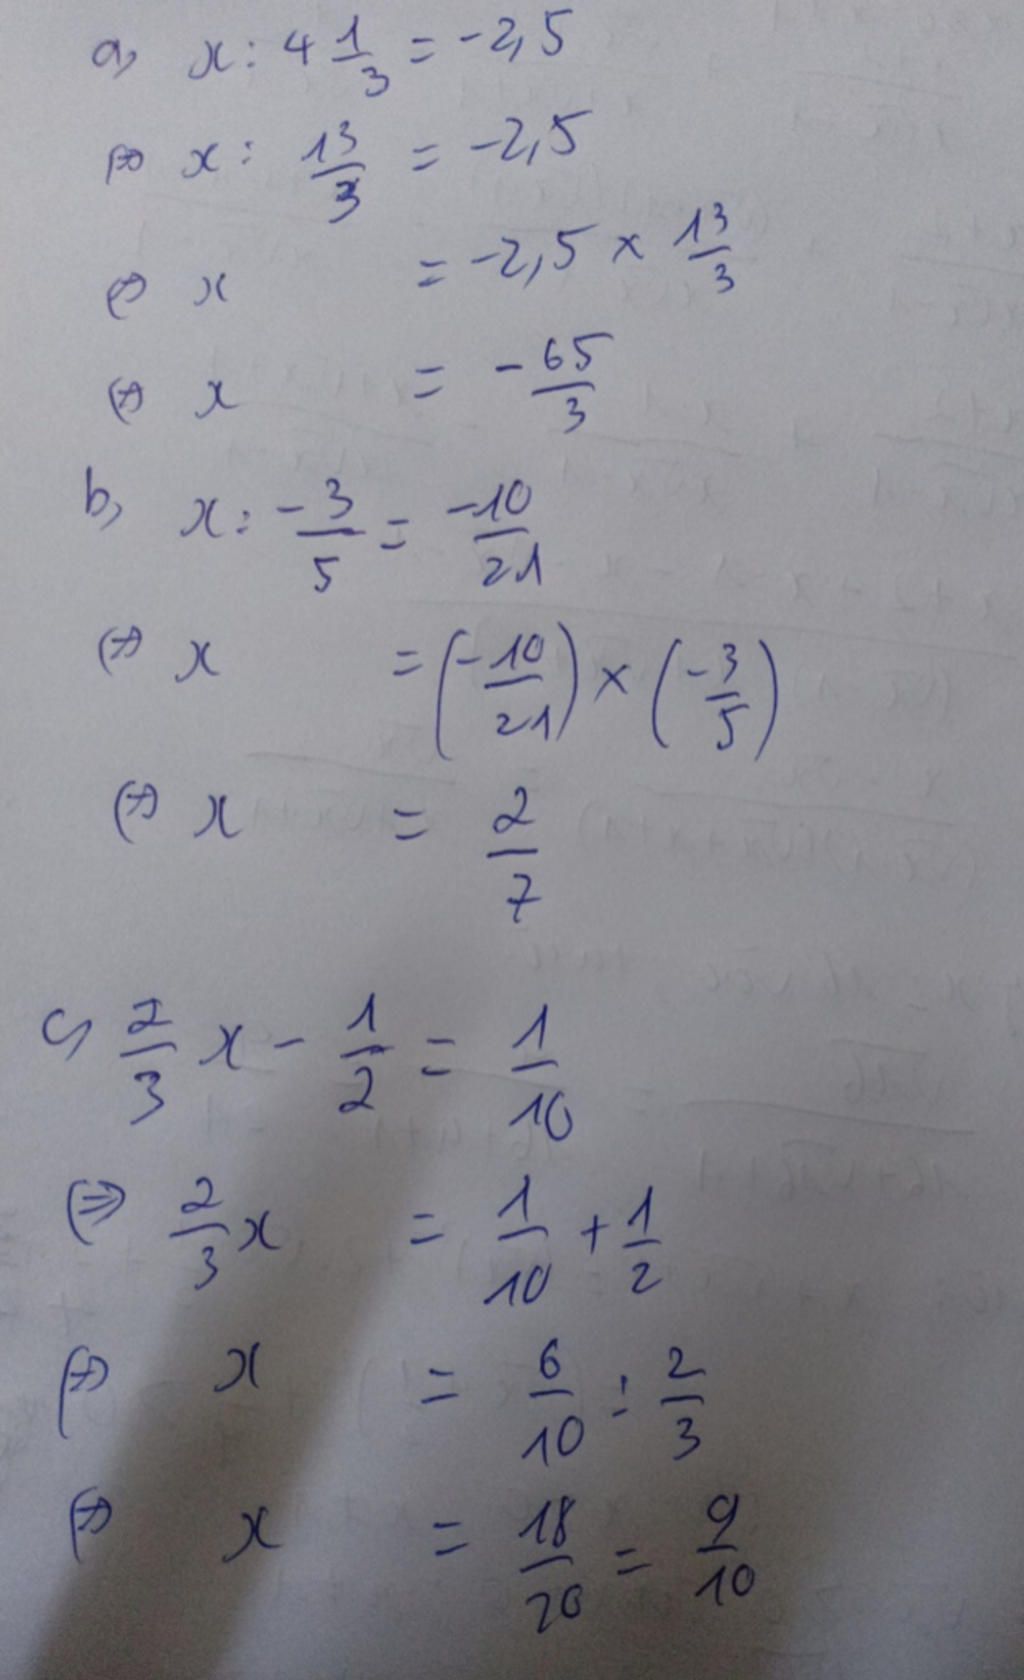 a, x : 4 1/3 = -2,5
⇔ x : 13/3 = -2,5
⇔ x = -2,5 × 13/3
⇔ x = -65/3
b, x : -3/5 = -10/21
⇔ x = (-10/21) × (-3/5)
⇔ x = 2/7
c, 2/3 x - 1/2 = 1/10
⇔ 2/3 x = 1/10 + 1/2
⇔ x = 6/10 : 2/3
⇔ x = 18/20 = 9/10